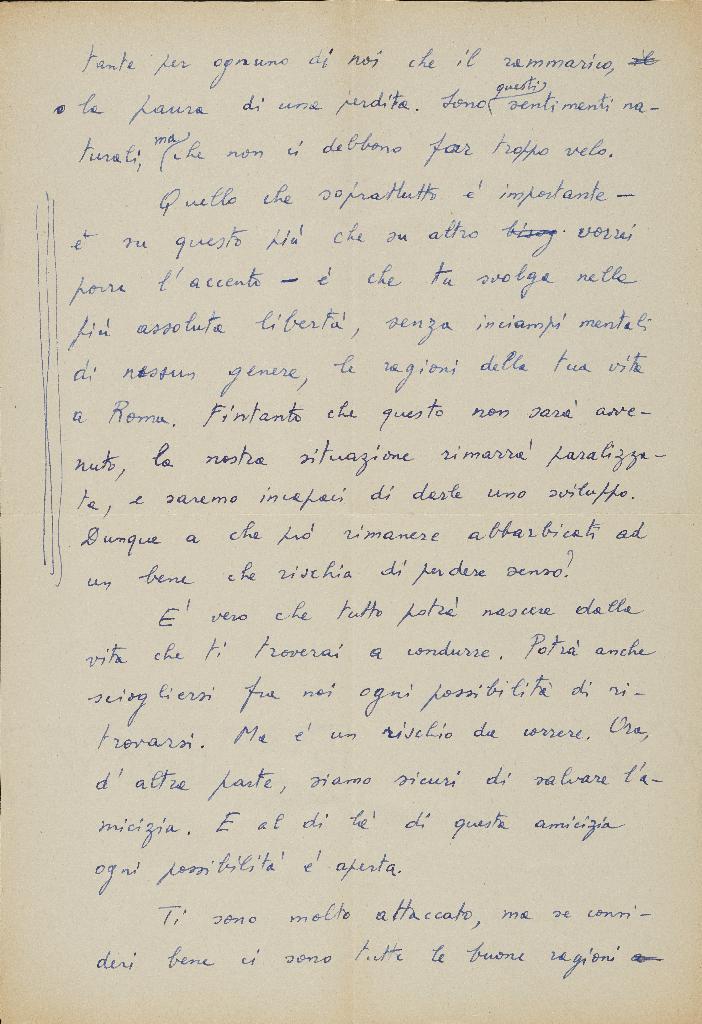 tante per ognuno di noi che il rammarico, il
o la paura di una perdita. Sono questi sentimenti na-
turali, ma che non ci debbono far troppo velo.
Quello che soprattutto é importante —
é su questo piú che su altro bisog vorrei
porre l'accento — é che tu svolga nella
piú assoluta libertá, senza inciampi mentali
di nessun genere, le ragioni della tua vita
a Roma. Fintanto che questo non sará avve-
nuto, la nostra situazione rimarrá paralizza-
ta, e saremo incapaci di darle uno sviluppo.
Dunque a che pró rimanere abbarbicati ad
un bene che rischia di perdere senso?
E' vero che tutto potrá nascere dalla
vita che ti troverai a condurre. Potrá anche
sciogliersi fra noi ogni possibilitá di ri-
trovarsi. Ma é un rischio da correre. Ora,
d'altra parte, siamo sicuri di salvare l'a-
micizia. E al di lá di questa amicizia
ogni possibilitá é aperta.
Ti sono molto attaccato, ma se consi-
deri bene ci sono tutte le buone ragioni a